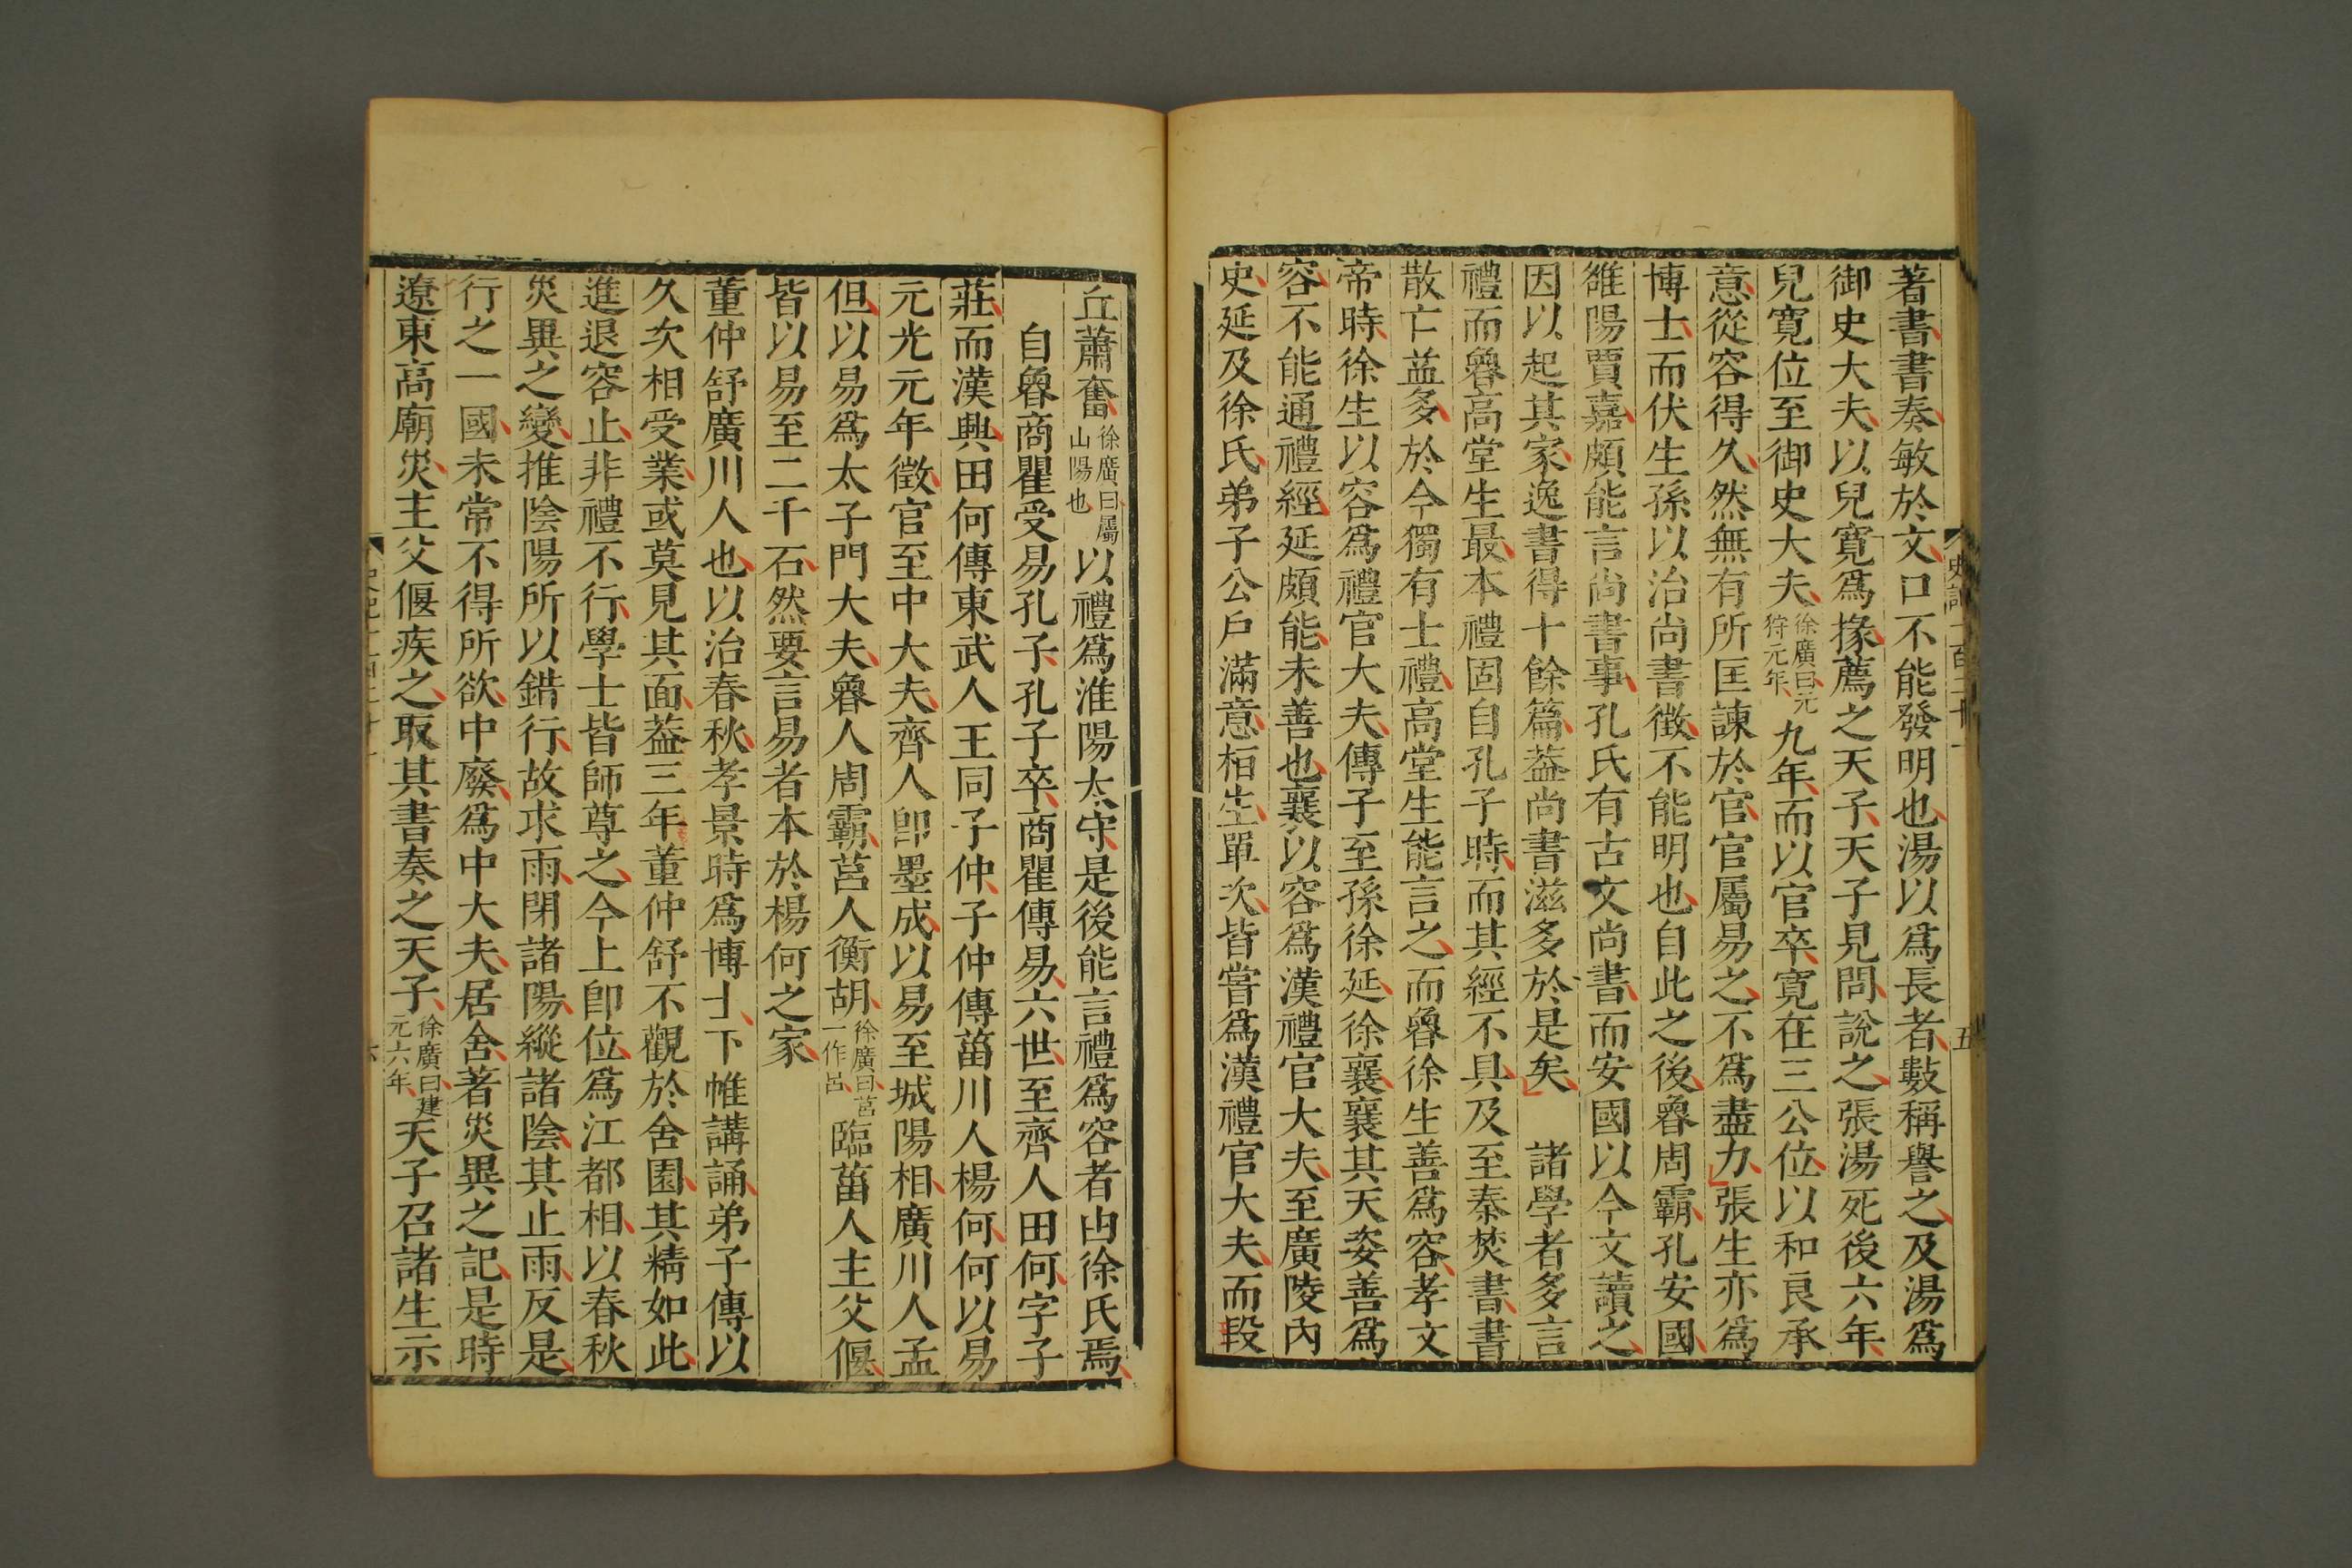 著書書奏敏於文口不能發明也湯以爲長者數稱譽之及湯爲
御史大夫以兒寬爲掾薦之天子天子見問說之張湯死後六年
兒寬位至御史大夫徐廣曰元狩元年九年而以官卒寬在三公位以和良承
意從容得久然無有所匡諫於官官屬易之不爲盡力張生亦爲
博士而伏生孫以治尚書徵不能明也自此之後魯周霸孔安國
雒陽賈嘉頗能言尚書事孔氏有古文尚書而安國以今文讀之
因以起其家逸書得十餘篇葢尚書滋多於是矣 諸學者多言
禮而魯高堂生最本禮固自孔子時而其經不具及至秦焚書書
散亡益多於今獨有士禮高堂生能言之而魯徐生善爲容孝文
帝時徐生以容爲禮官大夫傳子至孫徐延徐襄襄其天姿善爲
容不能通禮經延頗能未善也襄以容爲漢禮官大夫至廣陵內
史延及徐氏弟子公戶滿意栢生單次皆嘗爲漢禮官大夫而段
五
丘蕭奮徐廣曰屬山陽也以禮爲淮陽太守是後能言禮爲容者由徐氏焉
自魯商瞿受易孔子孔子卒商瞿傳易六世至齊人田何字子
莊而漢興田何傳東武人王同子仲子仲傳菑川人楊何何以易
元光元年徵官至中大夫齊人卽墨成以易至城陽相廣川人孟
但以易爲太子門大夫魯人周霸莒人衡胡徐廣曰莒一作呂臨菑人主父偃
皆以易至二千石然要言易者本於楊何之家
董仲舒廣川人也以治春秋孝景時爲博士下帷講誦弟子傳以
久次相受業或莫見其面葢三年董仲舒不觀於舍園其精如此
進退容止非禮不行學士皆師尊之今上卽位爲江都相以春秋
災異之變推陰陽所以錯行故求雨閉諸陽縱諸陰其止雨反是
行之一國未常不得所欲中廢爲中大夫居舍著災異之記是時
遼東高廟災主父偃疾之取其書奏之天子徐廣曰建元六年天子召諸生示